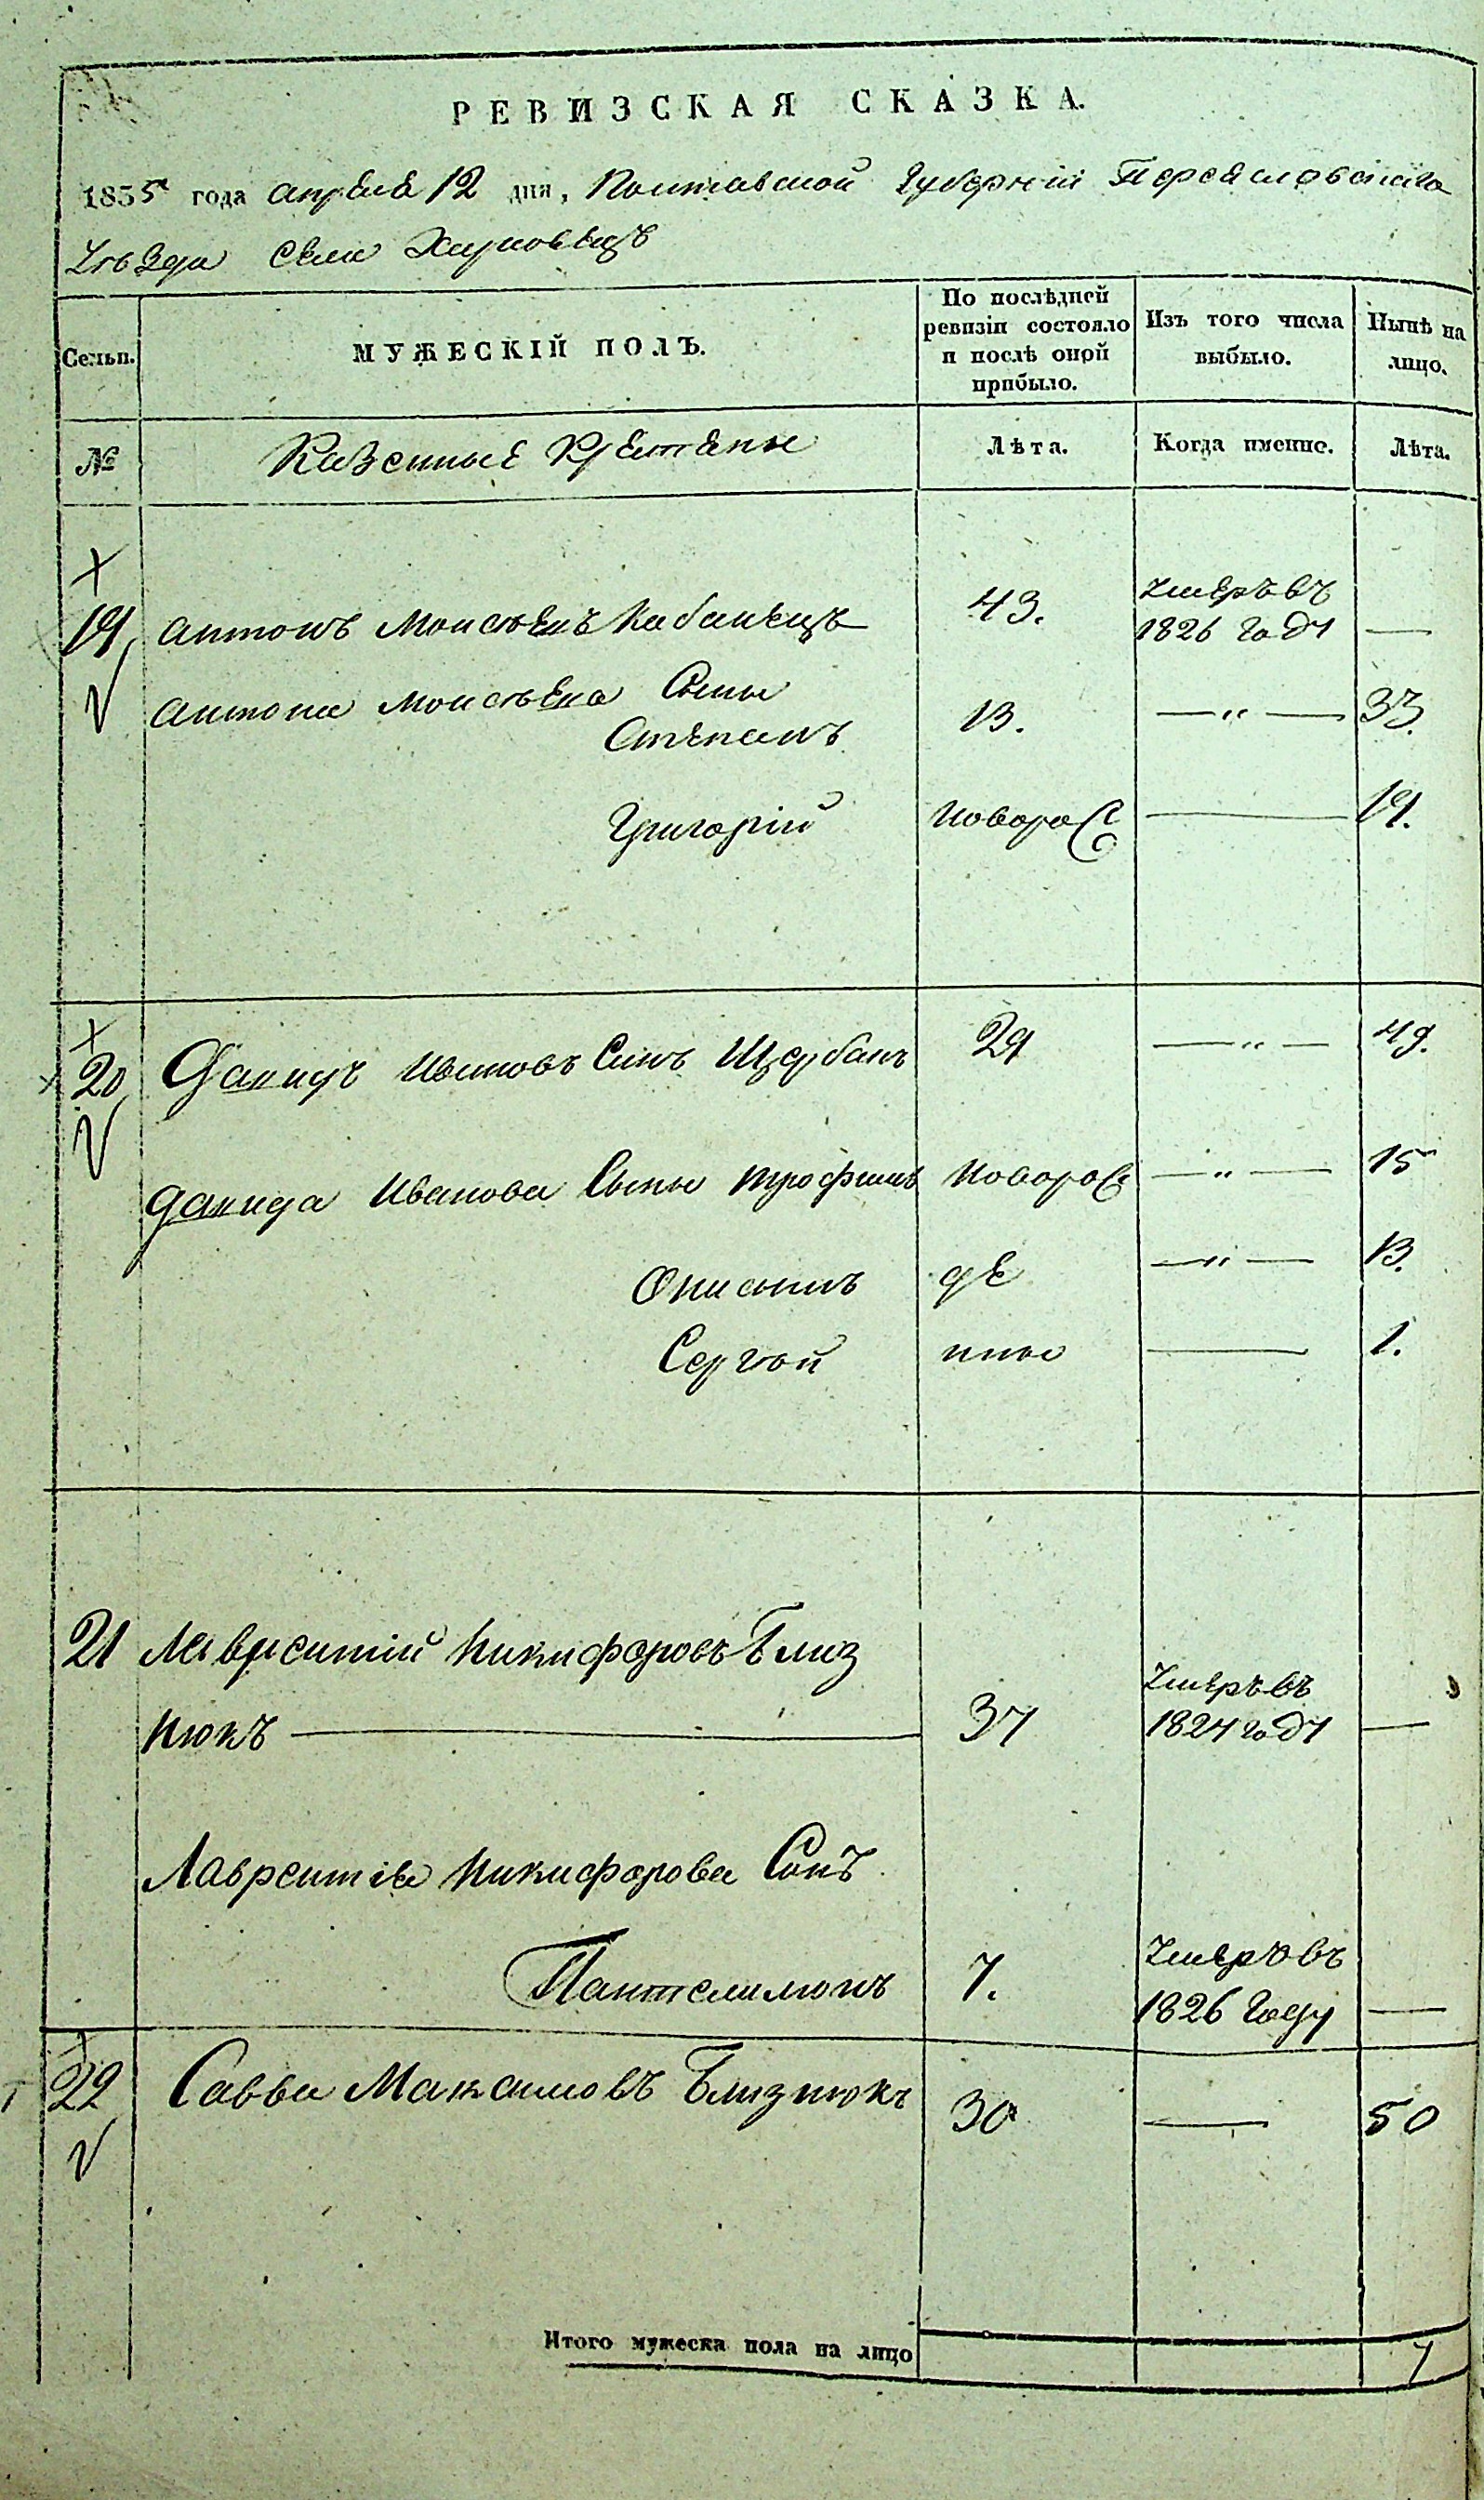 РЕВИЗСКАЯ СКАЗКА.
1835 года апреля 12 дня, Полтавской Губерніи Переясловскаго
Уѣзда Села
Сельи. МУЖЕСКІЙ ПОЛЪ. По послѣдней ревизіи состояло и послѣ оной прибыло. Изъ того числа выбыло. Нынѣ на лицо.
№ Казенные Крестяне Лѣта. Когда именно. Лѣта.
19 Антонъ Моисѣевъ Кабанецъ 43. Умеръ въ 1826 Году —
Антона Моисѣева Сыны
Степанъ 13. — „ — 33.
Григорій Новоро — 19.
20 Данидъ Ивановъ Синъ Щербанъ 29 — „ — 49.
Данида Иванова Сыны Трофимъ Новорос — „ — 15
Онисимъ — „ — 13.
Сергѣй — 1.
21 Лаврентій Никифоровъ Близ
нюкъ — 37 Умеръ въ 1827 Году —
Лаврентіа Никифорова Сонъ
Пантелимонъ 7. Умеръ въ 1826 Году —
22 Савва Максимовъ Близнюкъ 30 — 50
Итого мужеска пола на лицо 7